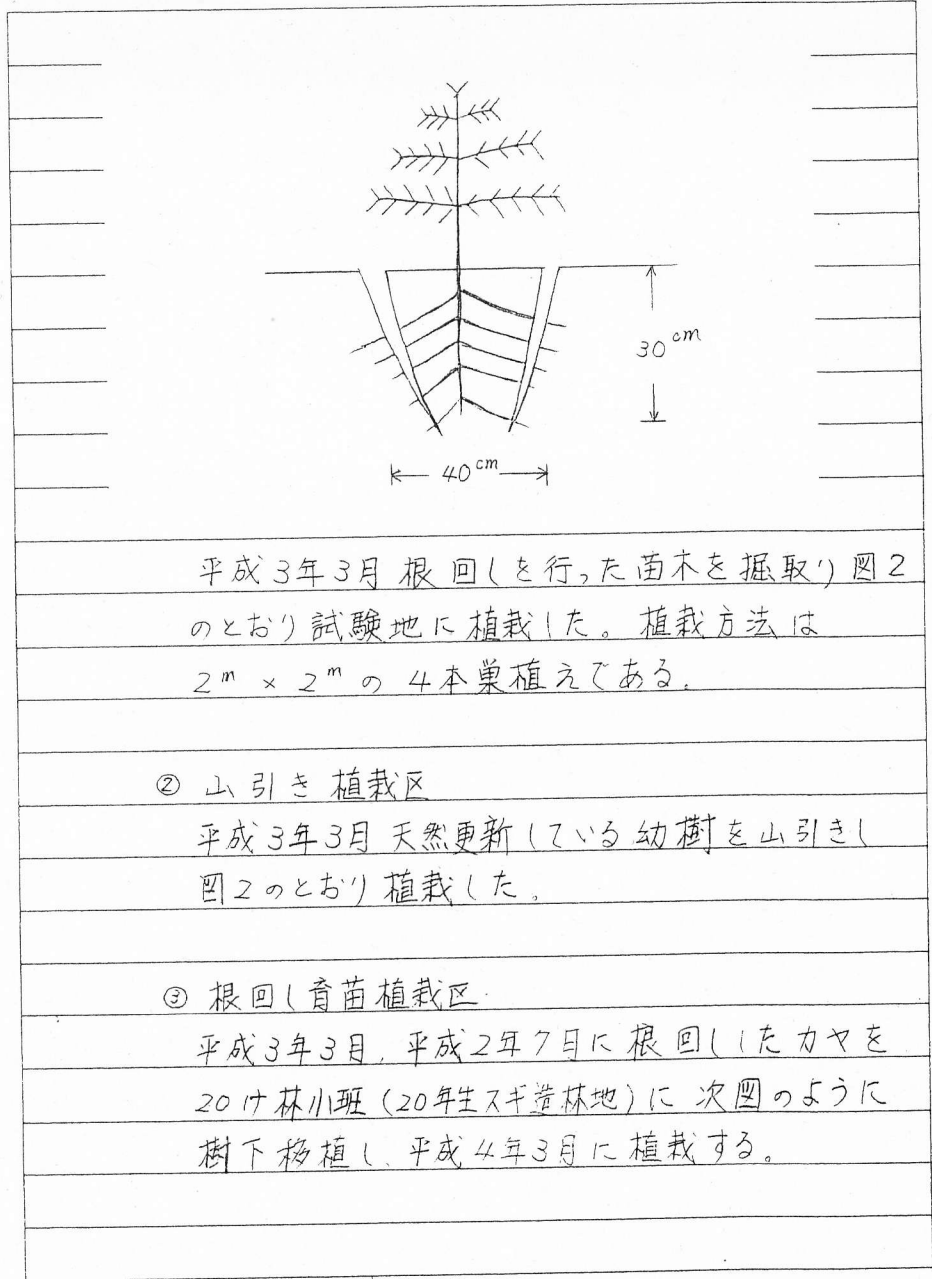 30cm
40cm
平成3年3月根回しを行った苗木を掘取り図2
のとおり試験地に植栽した。植栽方法は
2m × 2mの4本巣植えである。
② 山引き植栽区
平成3年3月天然更新している幼樹を山引きし
図2のとおり植栽した。
③ 根回し育苗植栽区
平成3年3月、平成2年7月に根回ししたカヤを
20け林小班(20年生スギ造林地)に次図のように
樹下移植し、平成4年3月に植栽する。